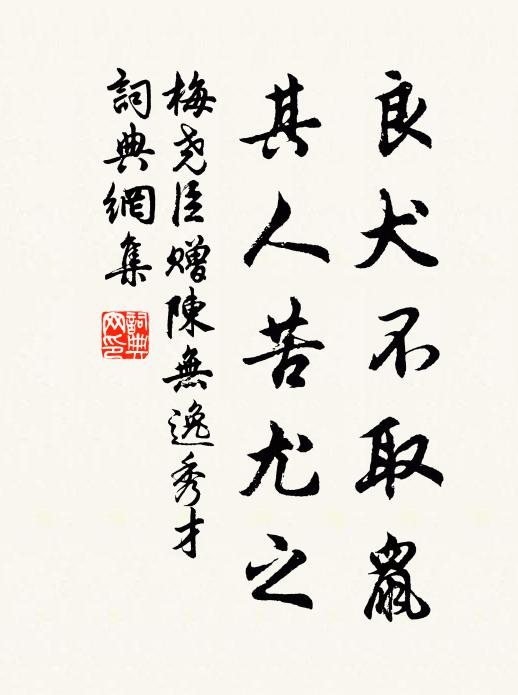 良犬不取鼠
其人苦尤之
梅堯臣贈陳無逸秀才
詞典網集
詞典
网印